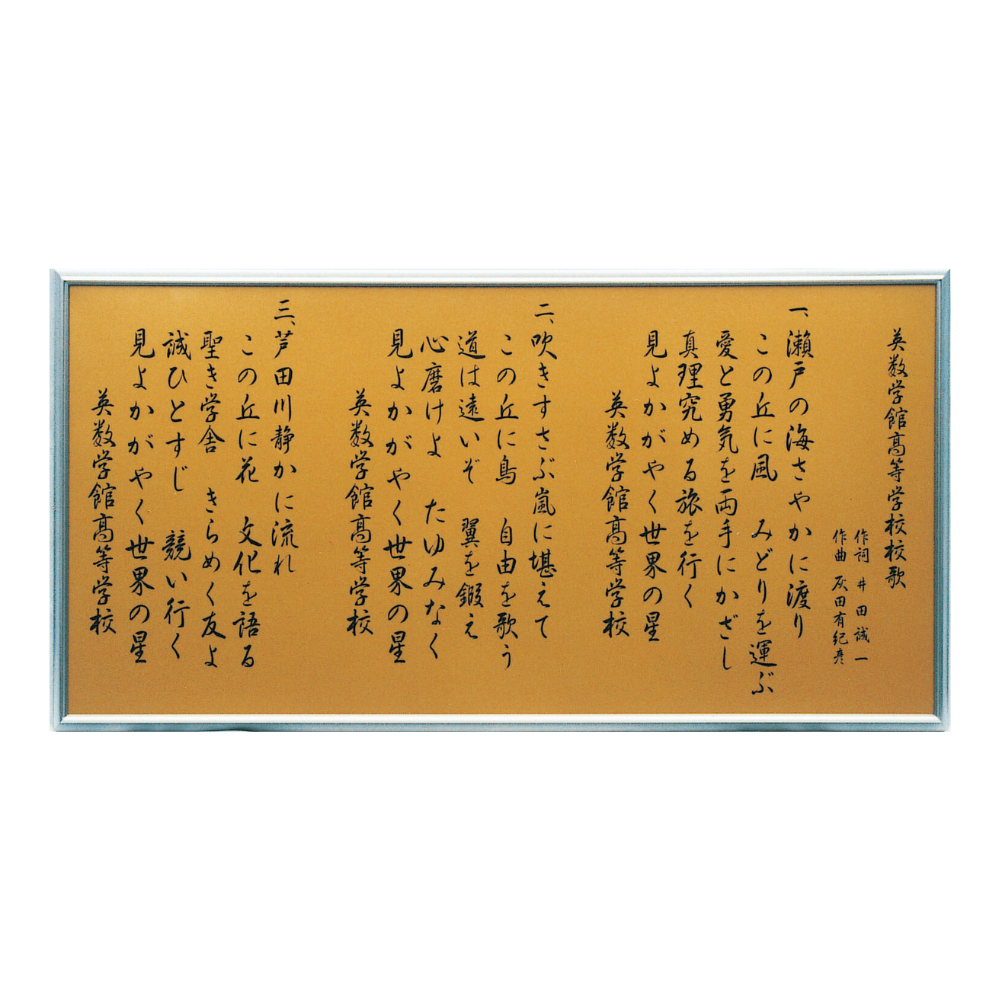 英数学館高等学校校歌
作詞 井田誠一
作曲 灰田有紀彦
一、瀬戸の海さやかに渡り
この丘に風 みどりを運ぶ
愛と勇気を両手にかざし
真理究める旅を行く
見よかがやく世界の星
英数学館高等学校
二、吹きすさぶ嵐に堪えて
この丘に鳥 自由を歌う
道は遠いぞ 翼を鍛え
心磨けよ たゆみなく
見よかがやく世界の星
英数学館高等学校
三、芦田川静かに流れ
この丘に花 文化を語る
聖き学舎 きらめく友よ
誠ひとすじ 競い行く
見よかがやく世界の星
英数学館高等学校